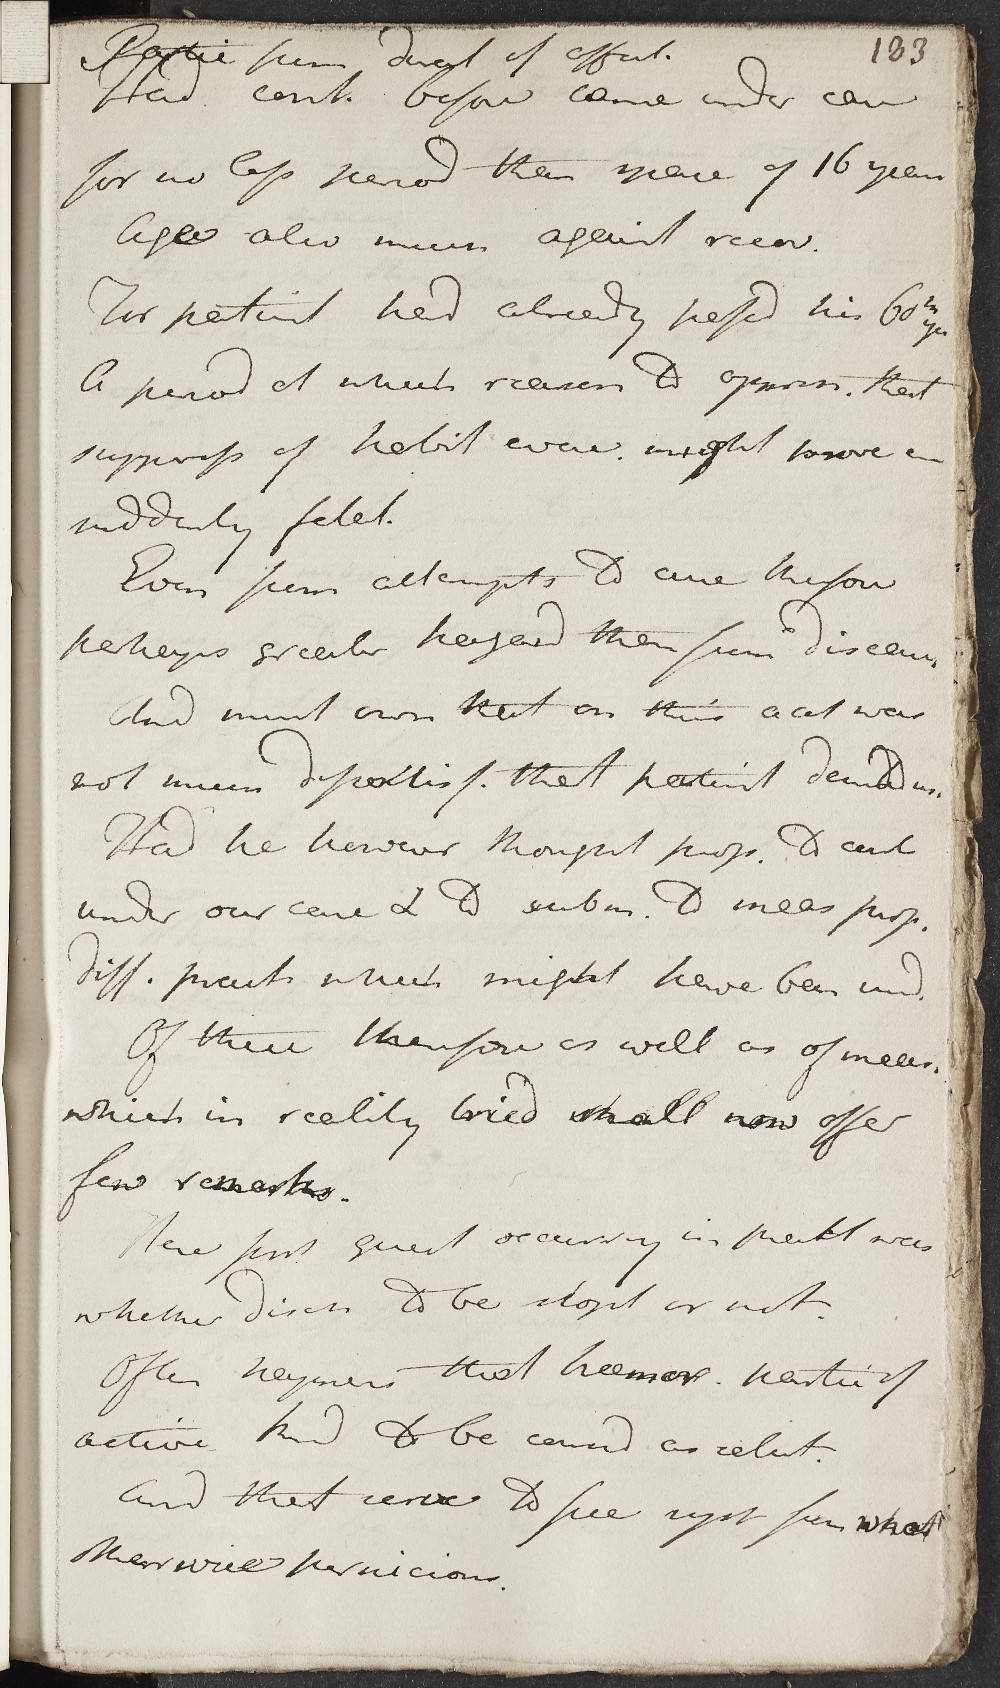 Partic from durat of affect. 183
Had cont. before came under care
for no less period than space of 16 years
Age also much against recov.
For patient had already passd his 60th yr
A period at which reason to apprehn. that
suppress of habit evac. might prove
suddenly fatal.
Even from attempts to cure therefore
perhaps greater hazard than from disease.
And must own that on this acct was
not much dissatisf. that patient
Had he however thought prop. to cont
under our care & to subm. to meas prop.
diff. pract which might have been
Of these therefore as well as of meas.
which in reality tried shall now offer
few remarks.
Here first quest occurring in pract was
whether disch to be stopt or not.
Often happens that haemor. partic of
active kind to be consd as salut.
And that serve to free syst from what
otherwise pernicious.